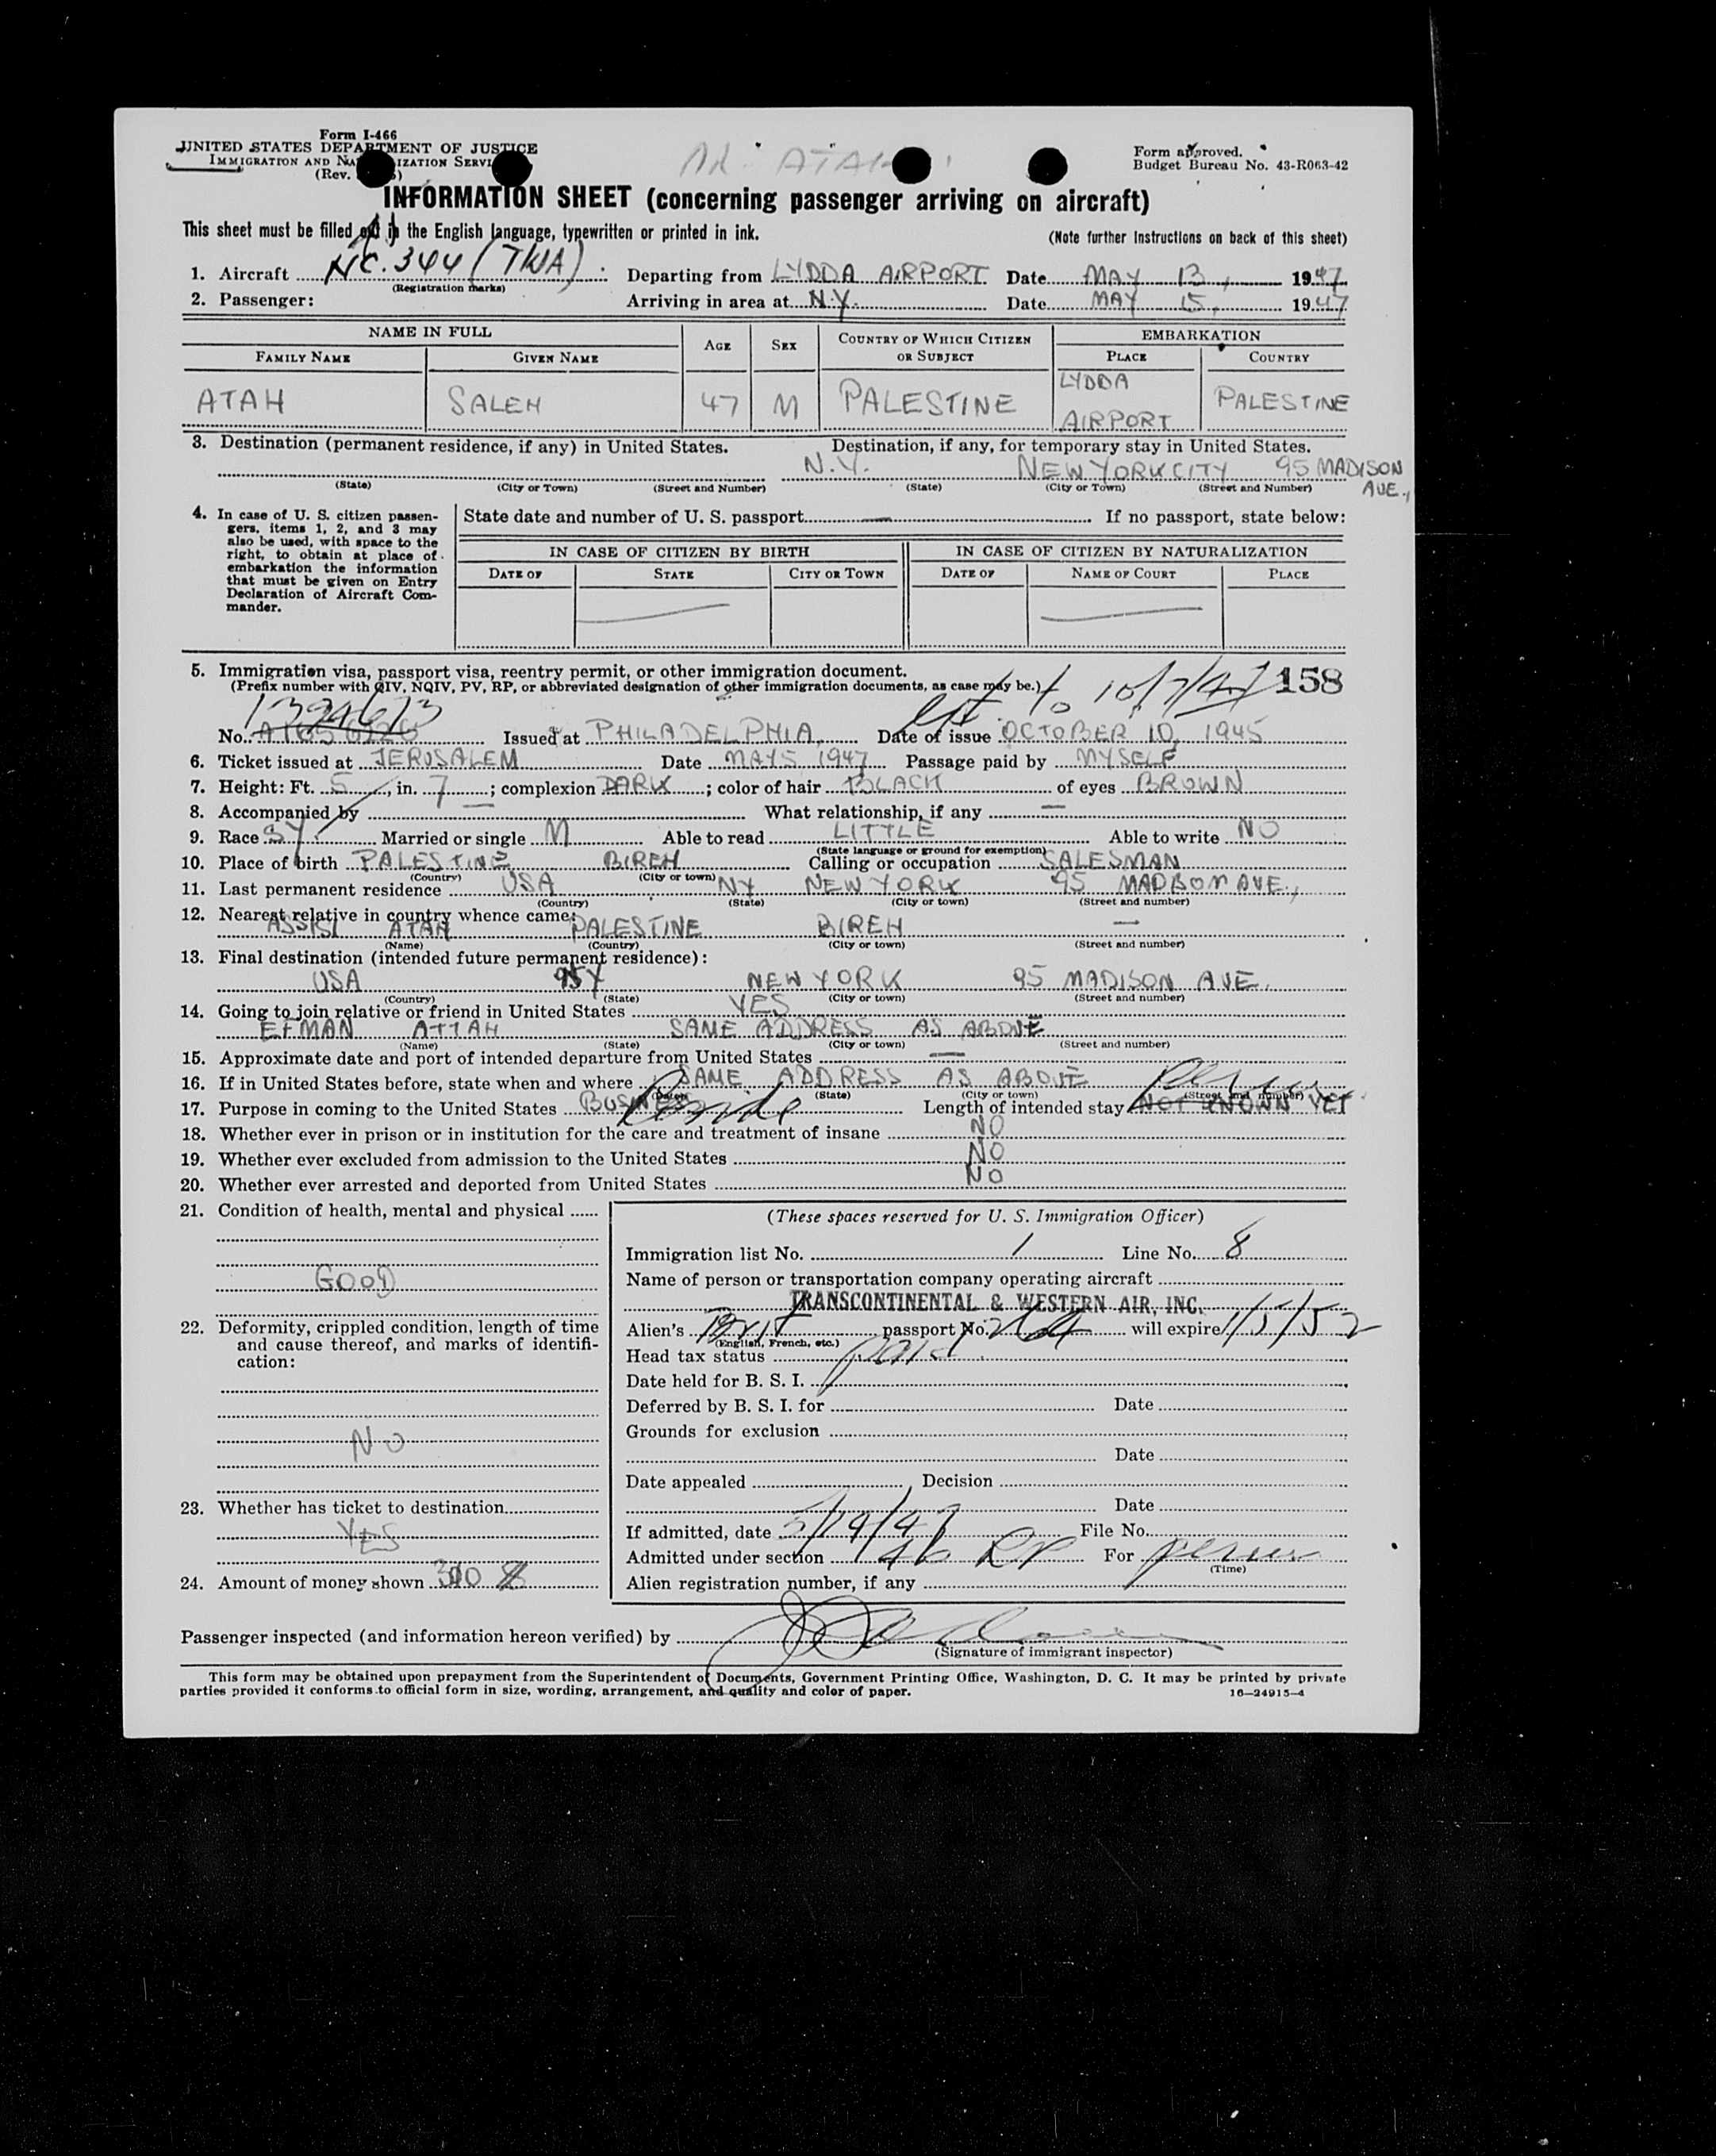 Form I-466
UNITED STATES DEPARTMENT OF JUSTICE
IMMIGRATION AND NATURALIZATION SERVICE
(Rev.
ATAH
Form approved.
Budget Bureau No. 43-R063-42
INFORMATION SHEET (concerning passenger arriving on aircraft)
This sheet must be filled out in the English language, typewritten or printed in ink. (Note further instructions on back of this sheet)
1. Aircraft NC. 344 (TWA) Departing from LYDDA AIRPORT Date MAY 13, 1947
(Registration marks)
2. Passenger: Arriving in area at N.Y. Date MAY 15, 1947
NAME IN FULL AGE SEX COUNTRY OF WHICH CITIZEN OR SUBJECT EMBARKATION
FAMILY NAME GIVEN NAME PLACE COUNTRY
ATAH SALEH 47 M PALESTINE LYDDA AIRPORT PALESTINE
3. Destination (permanent residence, if any) in United States. Destination, if any, for temporary stay in United States.
N.Y. NEW YORK CITY 95 MADISON AVE.,
(State) (City or Town) (Street and Number) (State) (City or Town) (Street and Number)
4. In case of U. S. citizen passengers, items 1, 2, and 3 may also be used, with space to the right, to obtain at place of embarkation the information that must be given on Entry Declaration of Aircraft Commander.
State date and number of U. S. passport — If no passport, state below:
IN CASE OF CITIZEN BY BIRTH IN CASE OF CITIZEN BY NATURALIZATION
DATE OF STATE CITY OR TOWN DATE OF NAME OF COURT PLACE
5. Immigration visa, passport visa, reentry permit, or other immigration document.
(Prefix number with QIV, NQIV, PV, RP, or abbreviated designation of other immigration documents, as case may be.)
ext. to 10/7/47 158
1394613
No. Issued at PHILADELPHIA, Date of issue OCTOBER 10, 1945
6. Ticket issued at JERUSALEM Date MAY 5 1947 Passage paid by MYSELF
7. Height: Ft. 5, in. 7; complexion DARK; color of hair BLACK of eyes BROWN
8. Accompanied by — What relationship, if any —
9. Race SY. Married or single M Able to read LITTLE Able to write NO
(State language or ground for exemption)
10. Place of birth PALESTINE BIREH Calling or occupation SALESMAN
(Country) (City or town)
11. Last permanent residence USA NY NEW YORK 95 MADISON AVE.,
(Country) (State) (City or town) (Street and number)
12. Nearest relative in country whence came:
ASSISI ATAH PALESTINE BIREH —
(Name) (Country) (City or town) (Street and number)
13. Final destination (intended future permanent residence):
USA NEW YORK 95 MADISON AVE.
(Country) (State) (City or town) (Street and number)
14. Going to join relative or friend in United States YES
EFMAN ATTAH SAME ADDRESS AS ABOVE
(Name) (State) (City or town) (Street and number)
15. Approximate date and port of intended departure from United States —
16. If in United States before, state when and where SAME ADDRESS AS ABOVE
(Dates) (State) (City or town) (Street and number)
17. Purpose in coming to the United States BUSINESS Reside Length of intended stay NOT KNOWN YET perm
18. Whether ever in prison or in institution for the care and treatment of insane NO
19. Whether ever excluded from admission to the United States NO
20. Whether ever arrested and deported from United States NO
21. Condition of health, mental and physical
GOOD
22. Deformity, crippled condition, length of time and cause thereof, and marks of identification:
NO
23. Whether has ticket to destination
YES
24. Amount of money shown 300 $
(These spaces reserved for U. S. Immigration Officer)
Immigration list No. 1 Line No. 8
Name of person or transportation company operating aircraft
TRANSCONTINENTAL & WESTERN AIR, INC.
Alien's Brit passport No. will expire 1/5/52
(English, French, etc.)
Head tax status paid
Date held for B. S. I.
Deferred by B. S. I. for Date
Grounds for exclusion
Date
Date appealed , Decision
Date
If admitted, date File No.
Admitted under section RP For perm
(Time)
Alien registration number, if any
Passenger inspected (and information hereon verified) by
(Signature of immigrant inspector)
This form may be obtained upon prepayment from the Superintendent of Documents, Government Printing Office, Washington, D. C. It may be printed by private
parties provided it conforms to official form in size, wording, arrangement, and quality and color of paper. 16—24915-4